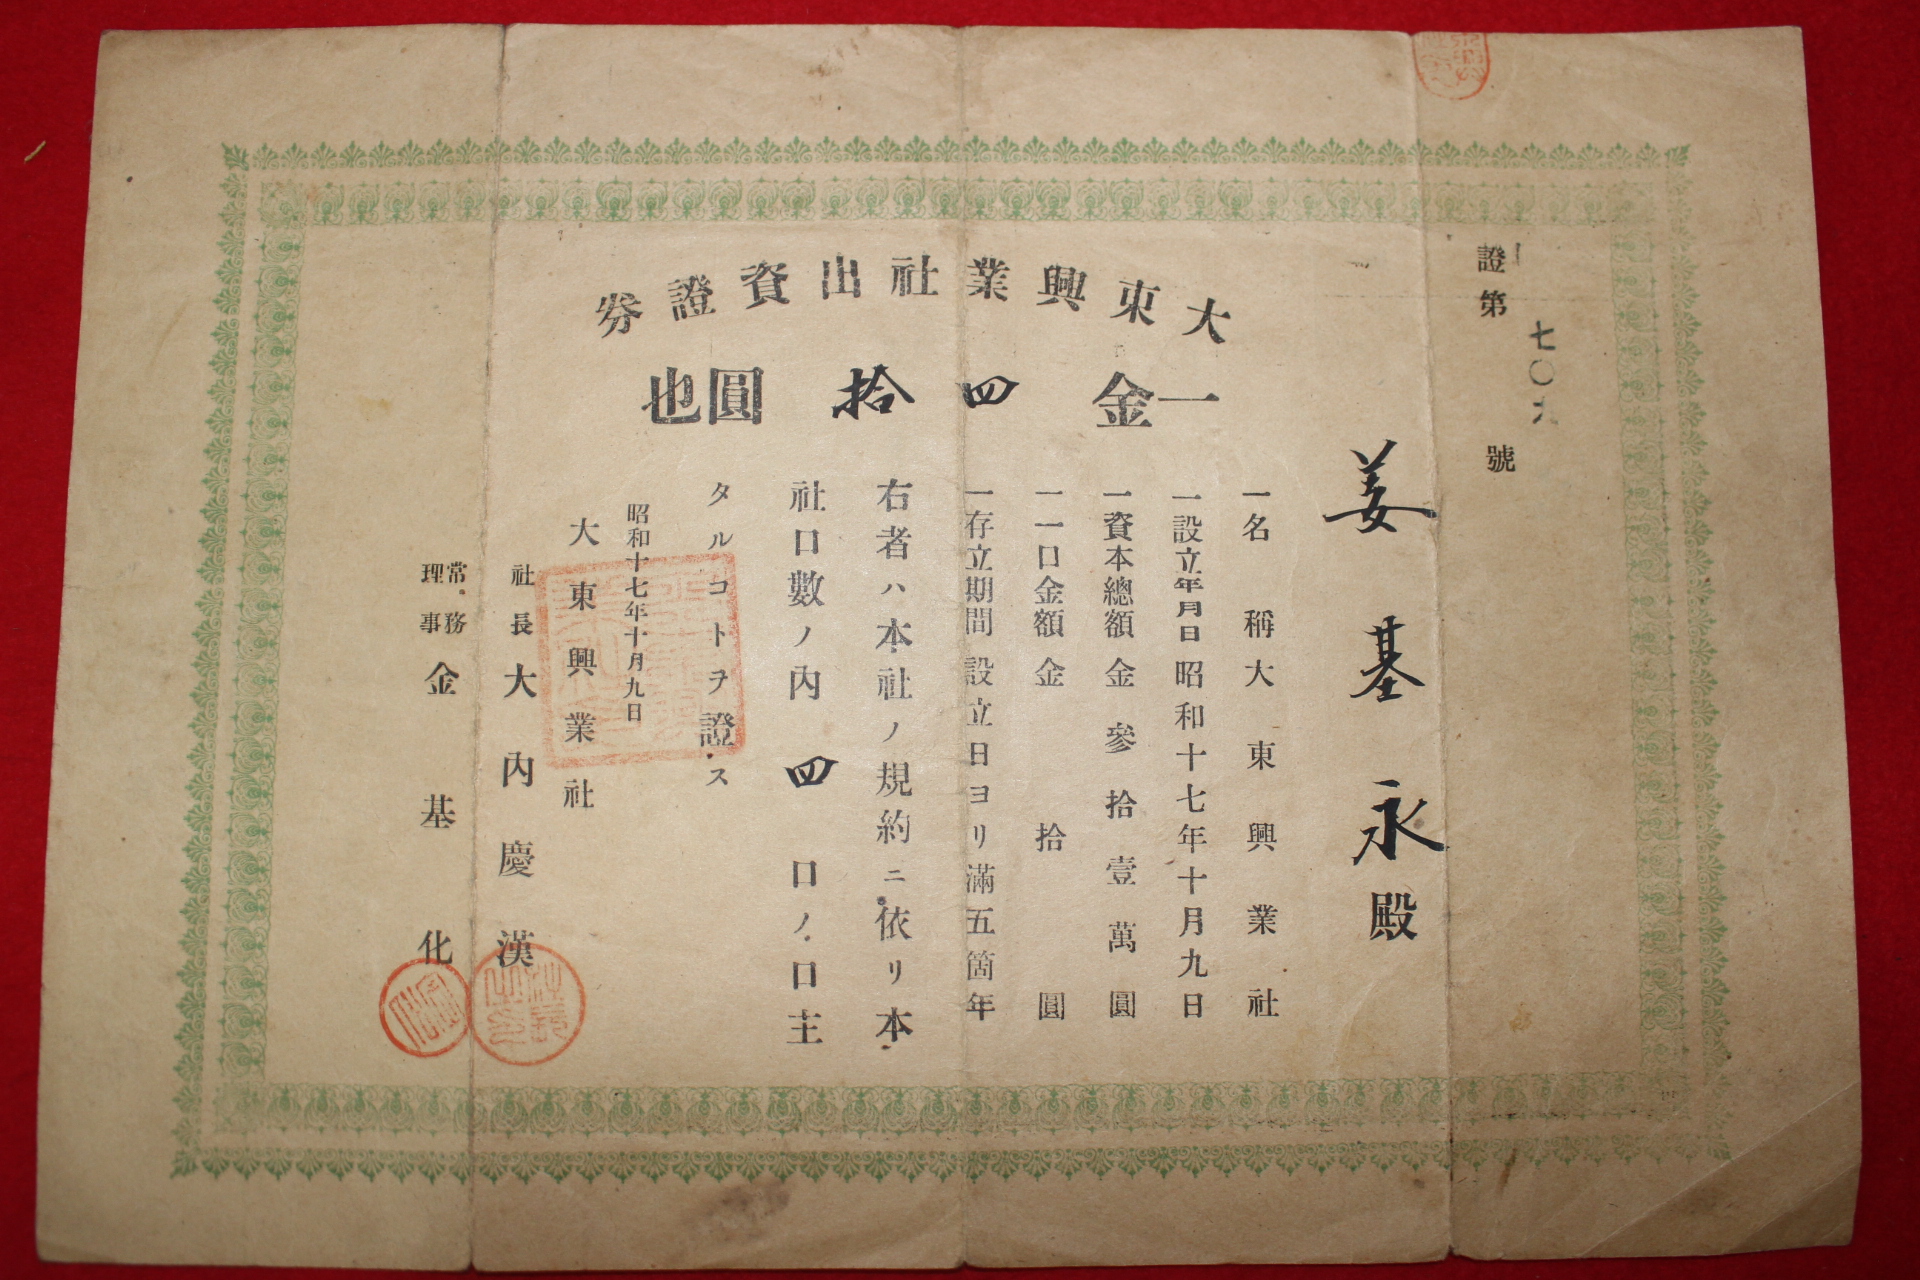 證第七〇九號
大東興業社出資證券
一金四拾圓也
姜基永殿
一名稱大東興業社
一設立年月日昭和十七年十月九日
一資本總額金參拾壹萬圓
一一口金額金拾圓
一存立期間設立日ヨリ滿五箇年
右者ハ本社ノ規約ニ依リ本
社口數ノ內四口ノ口主
タルコトヲ證ス
昭和十七年十月九日
大東興業社
社長大內慶漢
常務理事金基化